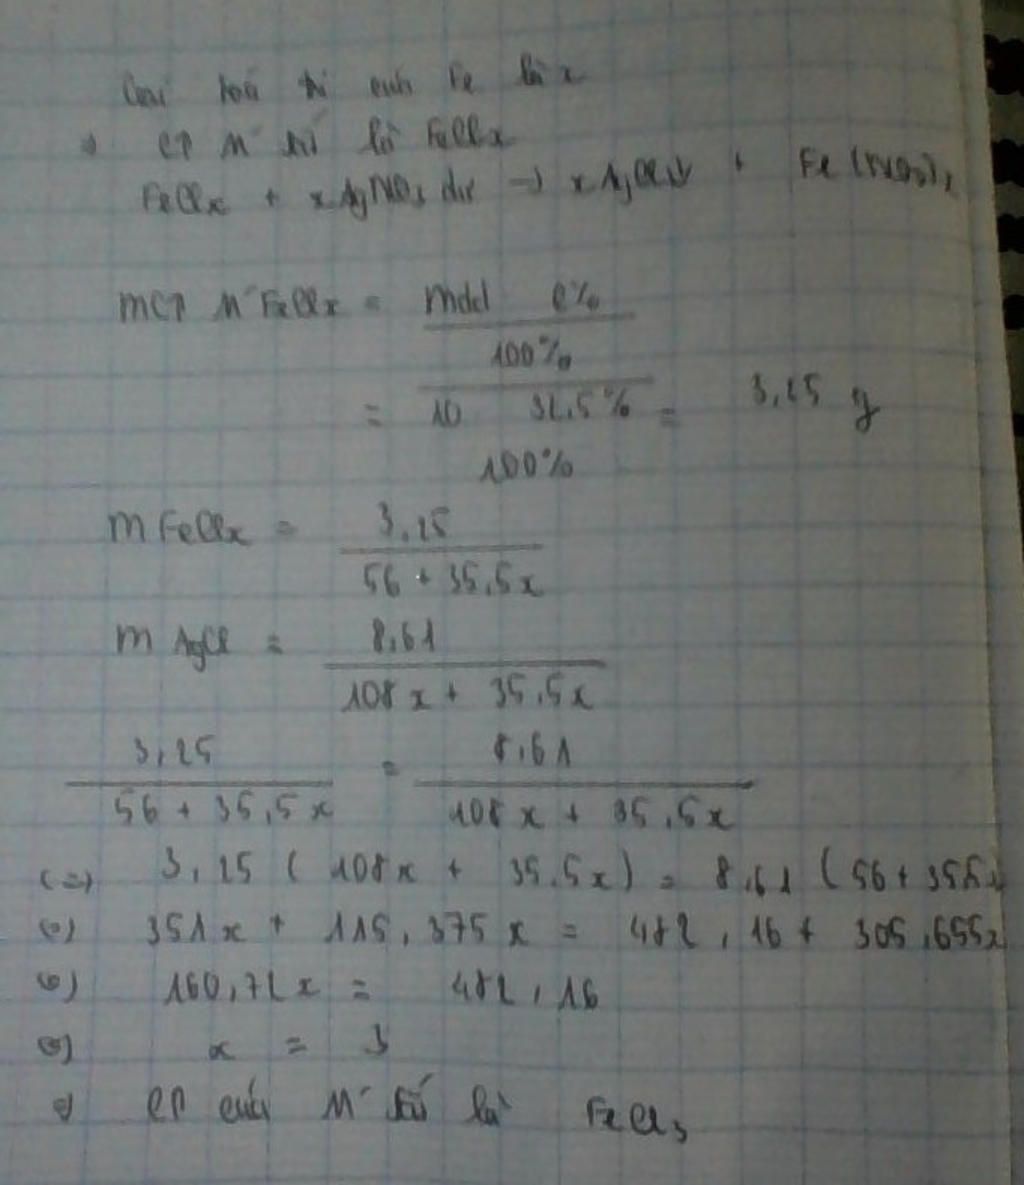 Gọi hoá trị của Fe là x
=> CT M' sắt là FeClx
FeClx + xAgNO3 dư -> xAgCl↓ + Fe(NO3)x
mCT M' FeClx = mdd C%
100%
= 10 32,5% = 3,25 g
100%
m FeClx = 3,25
56 + 35,5x
m AgCl = 8,61
108x + 35,5x
3,25 = 8,61
56 + 35,5x 108x + 35,5x
(=) 3,25 ( 108x + 35,5x ) = 8,61 ( 56 + 35,5x
(=) 351x + 115,375x = 482,16 + 305,655x
(=) 160,72x = 482,16
(=) x = 3
=> CT của M' sắt là FeCl3